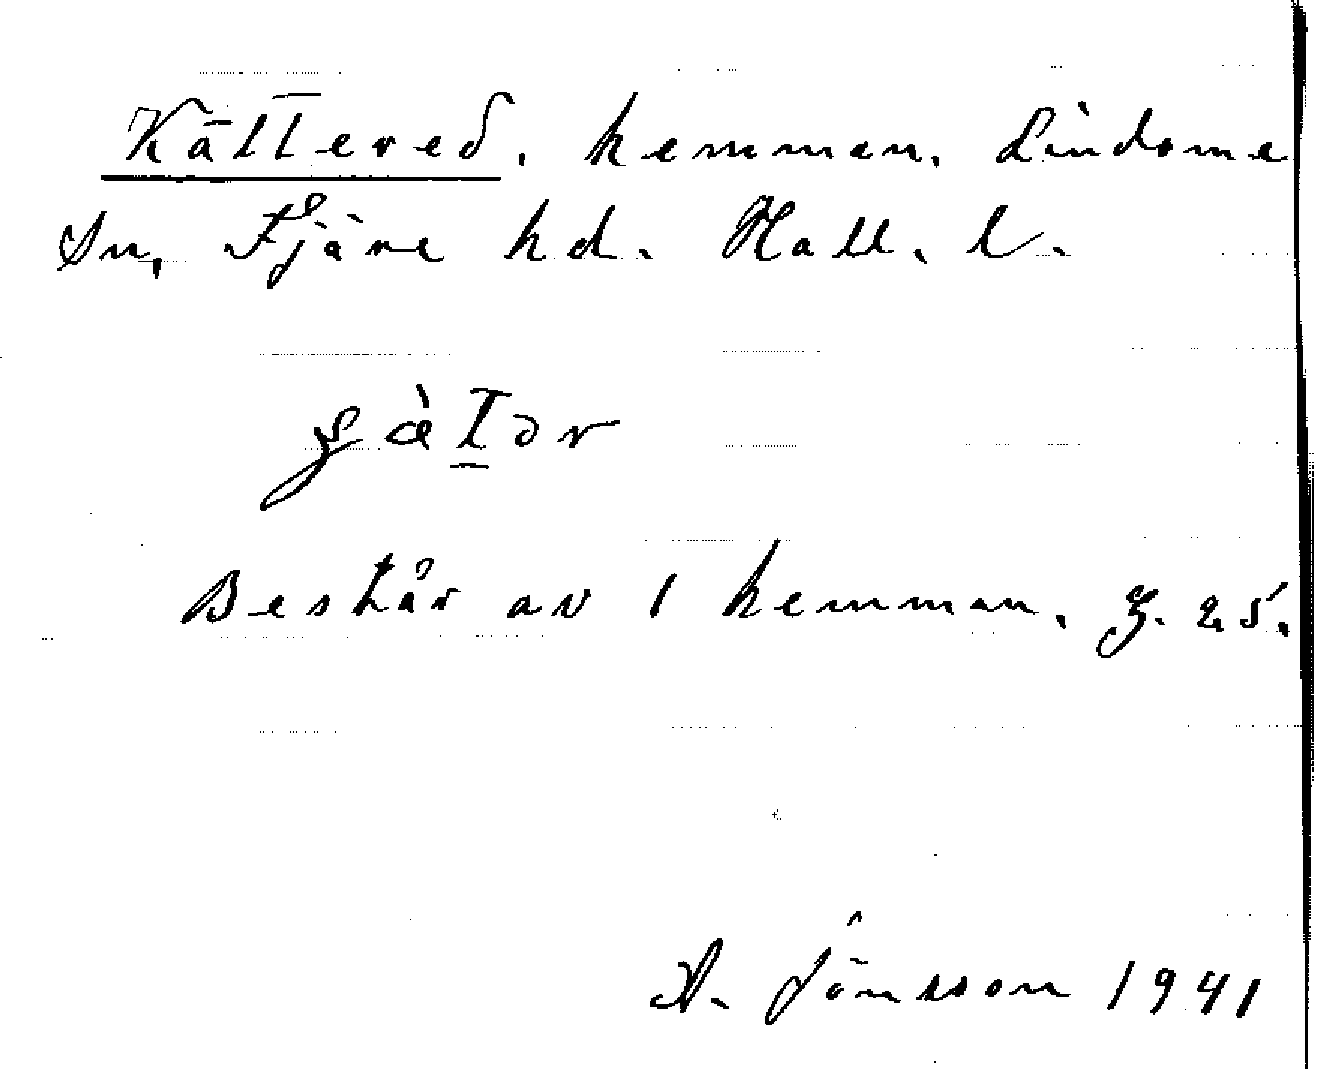 Kättered. hemman. Lindome
Sn, Fjäre hd. Hall. l.
Består av 1 hemman. J. 25.
A. Jönsson 1941